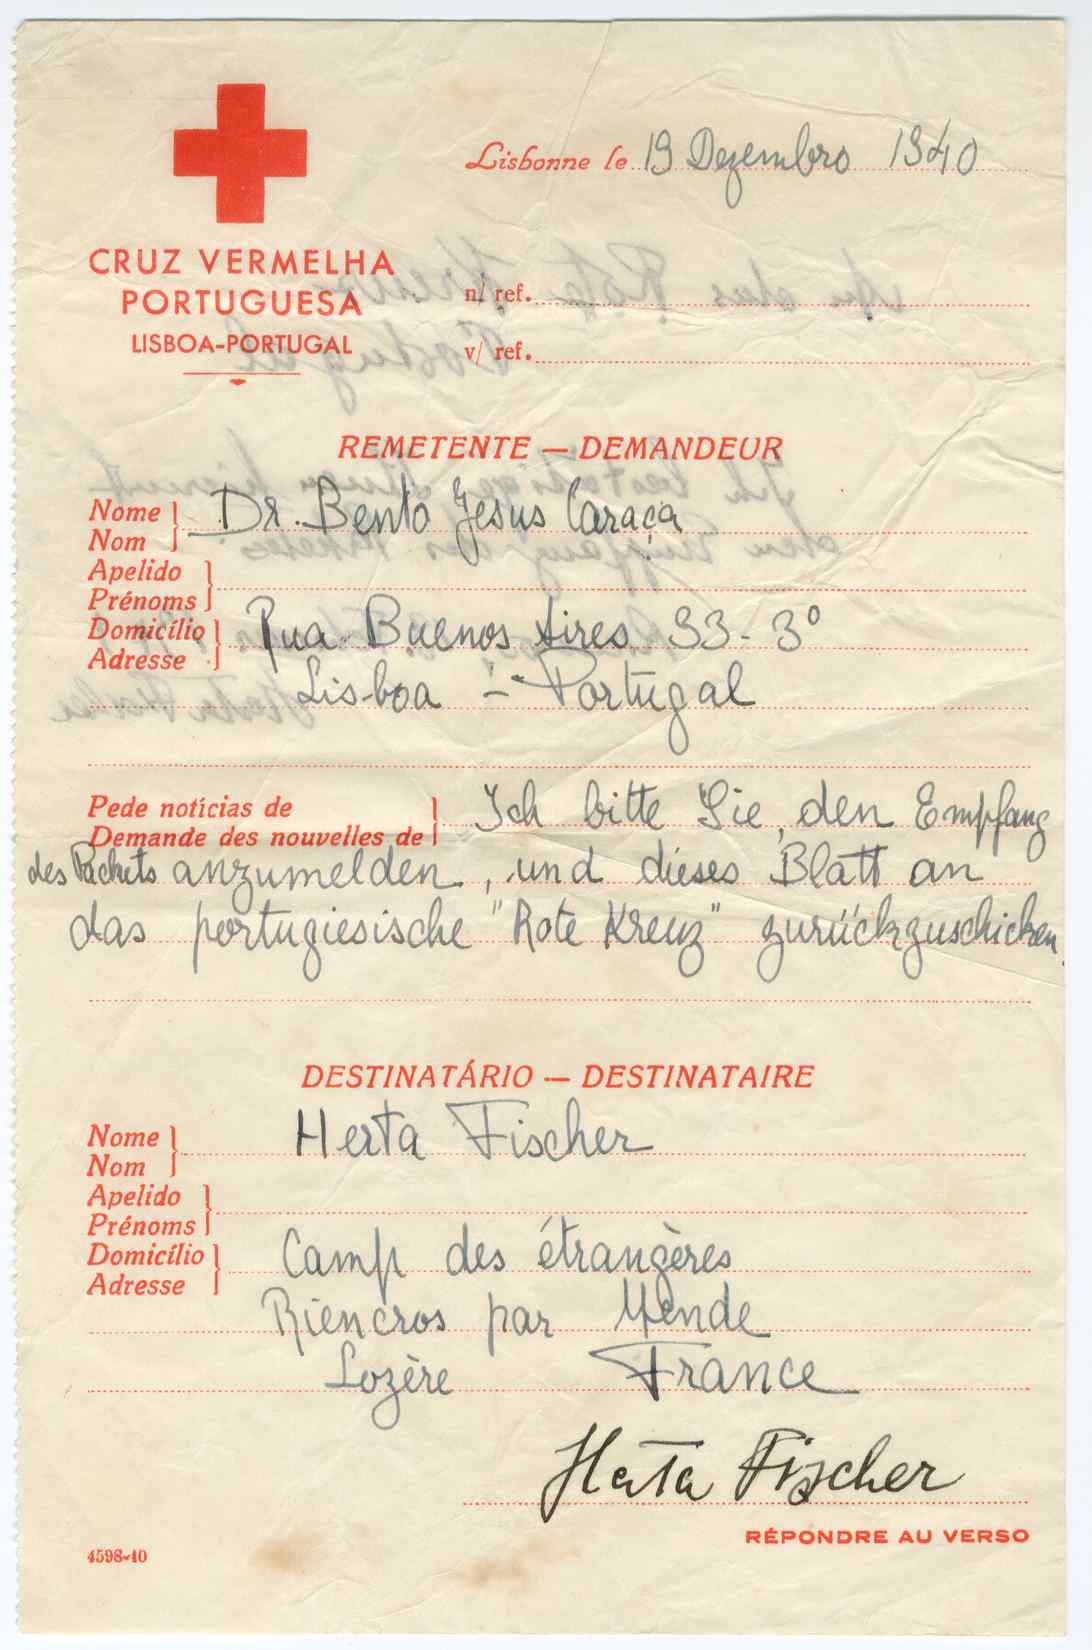 Lisbonne le 19 Dezembro 1940
CRUZ VERMELHA
PORTUGUESA
LISBOA-PORTUGAL
n/ ref.
v/ ref.
REMETENTE — DEMANDEUR
Nome
Nom
Dr. Bento Jesus Caraça
Apelido
Prénoms
Domicílio
Adresse
Rua Buenos Aires 33-3º
Lisboa - Portugal
Pede notícias de
Demande des nouvelles de
Ich bitte Sie, den Empfang
des Packets anzumelden, und dieses Blatt an
das portugiesische "Rote Kreuz" zurückzuschicken.
DESTINATÁRIO — DESTINATAIRE
Nome
Nom
Herta Fischer
Apelido
Prénoms
Domicílio
Adresse
Camp des étrangères
Riencros par Mende
Lozère France
Herta Fischer
RÉPONDRE AU VERSO
4598-40